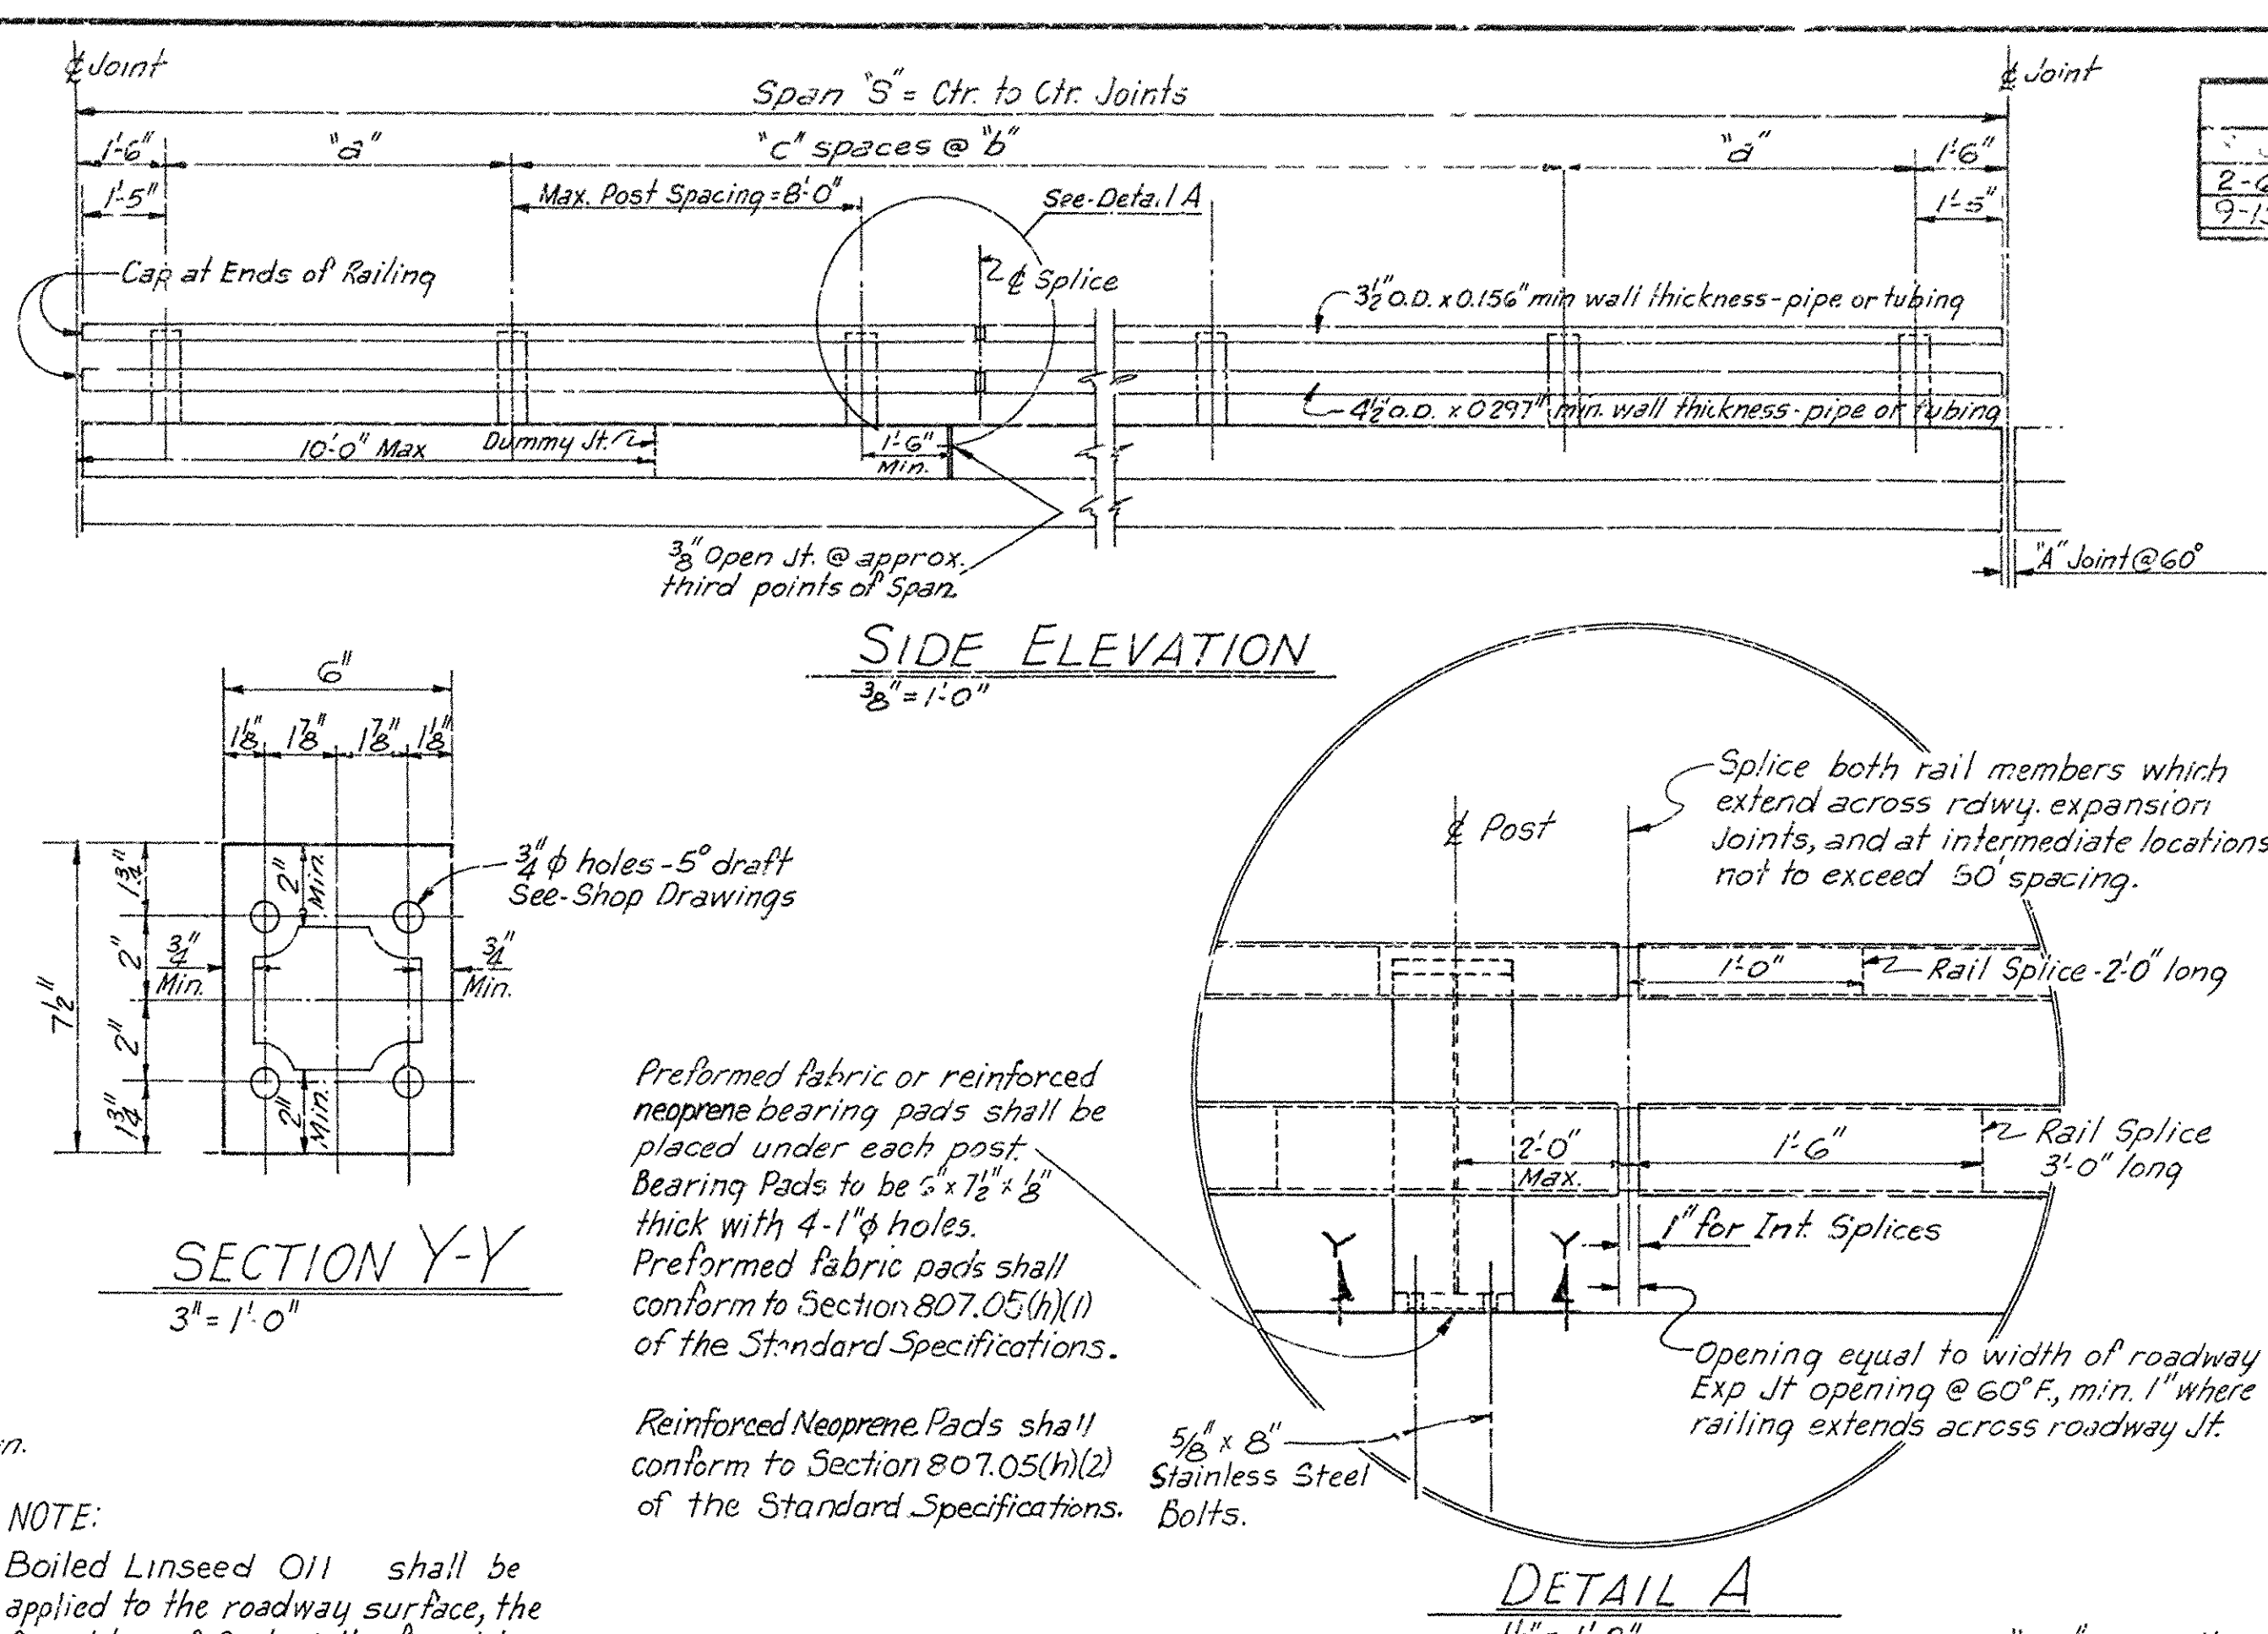 ℄ Joint
℄ Joint
Span "S" = Ctr. to Ctr. Joints
1'-6"
"a"
"c" spaces @ "b"
"a"
1'-6"
1'-5"
Max. Post Spacing = 8'-0"
See-Detail A
1'-5"
Cap at Ends of Railing
℄ Splice
3½" O.D. x 0.156" min wall thickness-pipe or tubing
4½" O.D. x 0.297" min. wall thickness-pipe or tubing
10'-0" Max
Dummy Jt.
1'-6"
Min.
3/8" Open Jt. @ approx.
third points of Span.
"A" Joint @ 60°
SIDE ELEVATION
3/8" = 1'-0"
6"
1⅛"
1⅞"
1⅞"
1⅛"
7½"
1¾"
2"
2"
1¾"
2"
Min.
¾"
Min.
¾"
Min.
2"
Min.
¾" ϕ holes - 5° draft
See-Shop Drawings
SECTION Y-Y
3" = 1'-0"
Preformed fabric or reinforced
neoprene bearing pads shall be
placed under each post.
Bearing Pads to be x 7½" x ⅛"
thick with 4-1" ϕ holes.
Preformed fabric pads shall
conform to Section 807.05(h)(1)
of the Standard Specifications.
Reinforced Neoprene Pads shall
conform to Section 807.05(h)(2)
of the Standard Specifications.
NOTE:
Boiled Linseed Oil shall be
applied to the roadway surface, the
Splice both rail members which
extend across rdwy. expansion
Joints, and at intermediate locations
not to exceed 50' spacing.
℄ Post
1'-0"
Rail Splice - 2'-0" long
2'-0"
Max.
1'-6"
Rail Splice
3'-0" long
1" for Int. Splices
Y
Y
Opening equal to width of roadway
Exp Jt opening @ 60° F., min. 1" where
railing extends across roadway Jt.
5/8" x 8"
Stainless Steel
Bolts.
DETAIL A